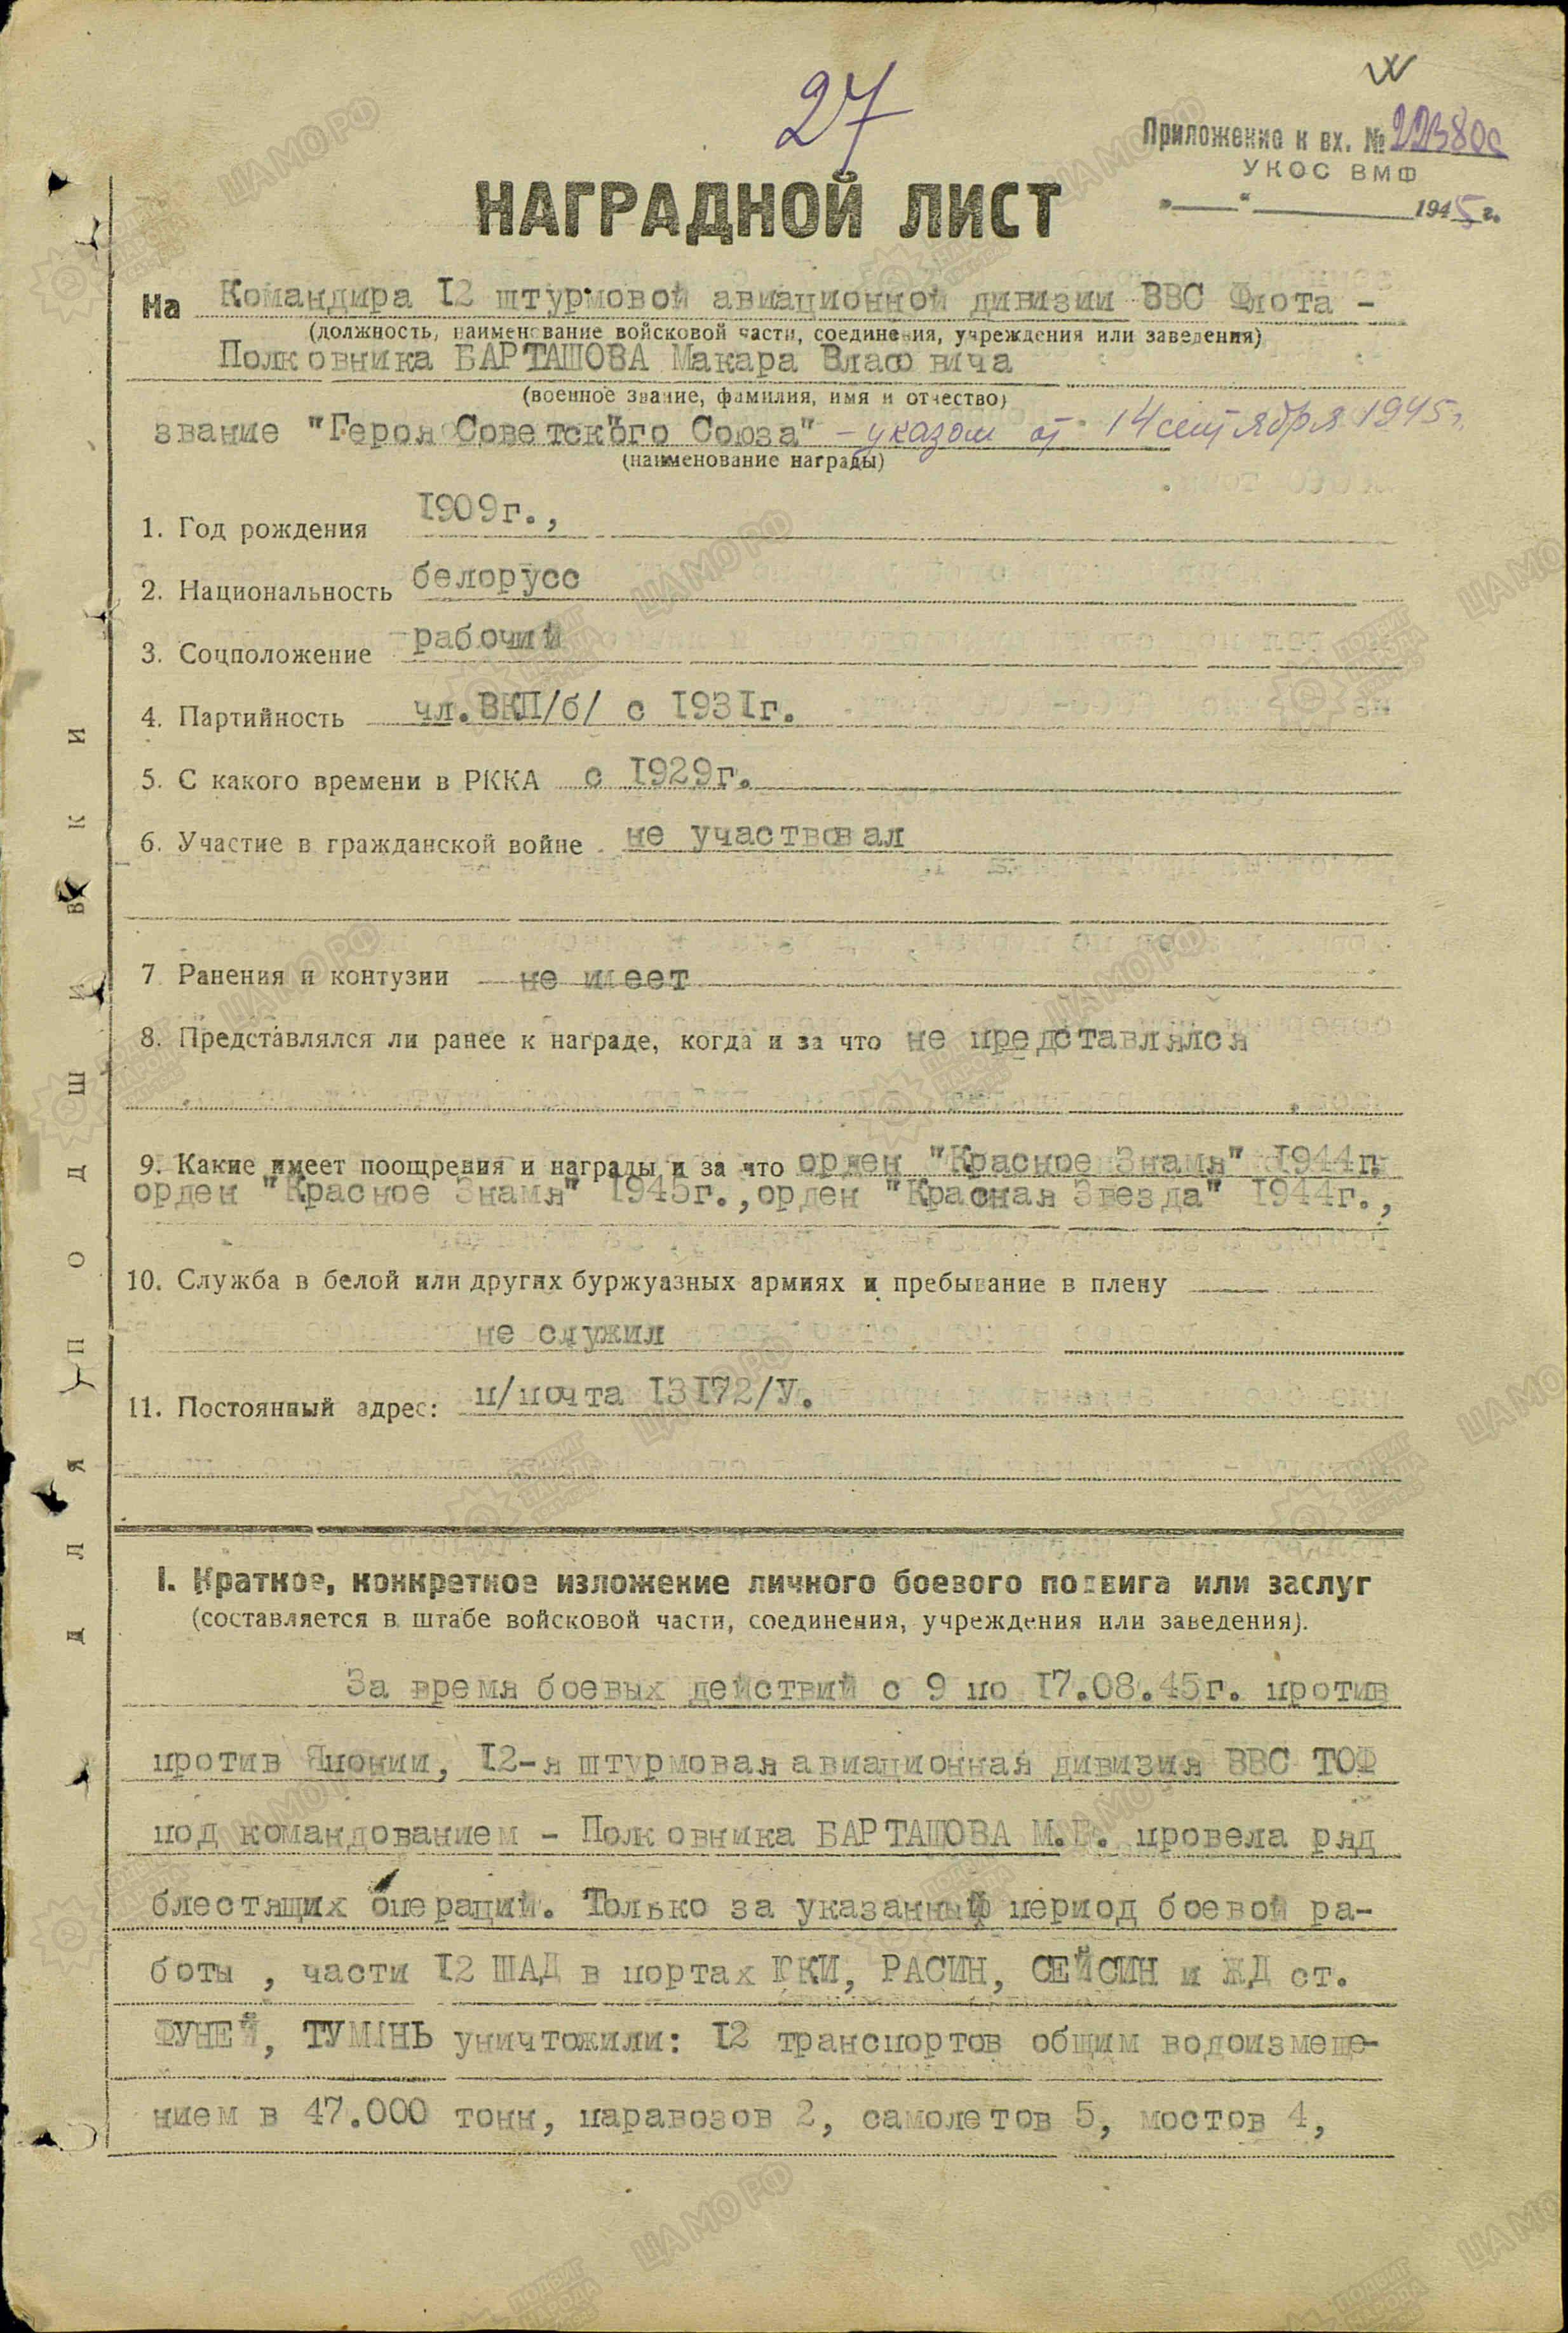 27
Приложение к вх. № 22380с
УКОС ВМФ
"___" ________ 1945 г.
НАГРАДНОЙ ЛИСТ
На Командира 12 штурмовой авиационной дивизии ВВС Флота -
(должность, наименование войсковой части, соединения, учреждения или заведения)
Полковника БАРТАШОВА Макара Влафовича
(военное звание, фамилия, имя и отчество)
звание "Героя Советского Союза" - указом от 14 сентября 1945г.
(наименование награды)
1. Год рождения 1909г.,
2. Национальность белорусс
3. Соцположение рабочий
4. Партийность чл.ВКП/б/ с 1931г.
5. С какого времени в РККА с 1929г.
6. Участие в гражданской войне не участвовал
7 Ранения и контузии не имеет
8. Представлялся ли ранее к награде, когда и за что не представлялся
9. Какие имеет поощрения и награды и за что орден "Красное Знамя" 1944г.
орден "Красное Знамя" 1945г., орден "Красная Звезда" 1944г.,
10. Служба в белой или других буржуазных армиях и пребывание в плену
не служил
11. Постоянный адрес: п/почта 13172/У.
ДЛЯ ПОДШИВКИ
I. Краткое, конкретное изложение личного боевого подвига или заслуг
(составляется в штабе войсковой части, соединения, учреждения или заведения).
За время боевых действий с 9 по 17.08.45г. против
против Японии, 12-я штурмовая авиационная дивизия ВВС ТОФ
под командованием - Полковника БАРТАШОВА М.В. провела ряд
блестящих операций. Только за указанный период боевой ра-
боты , части 12 ШАД в портах ЮКИ, РАСИН, СЕЙСИН и ЖД ст.
ФУНЕЙ, ТУМЫНЬ уничтожили: 12 транспортов общим водоизмеще-
нием в 47.000 тонн, паравозов 2, самолетов 5, мостов 4,